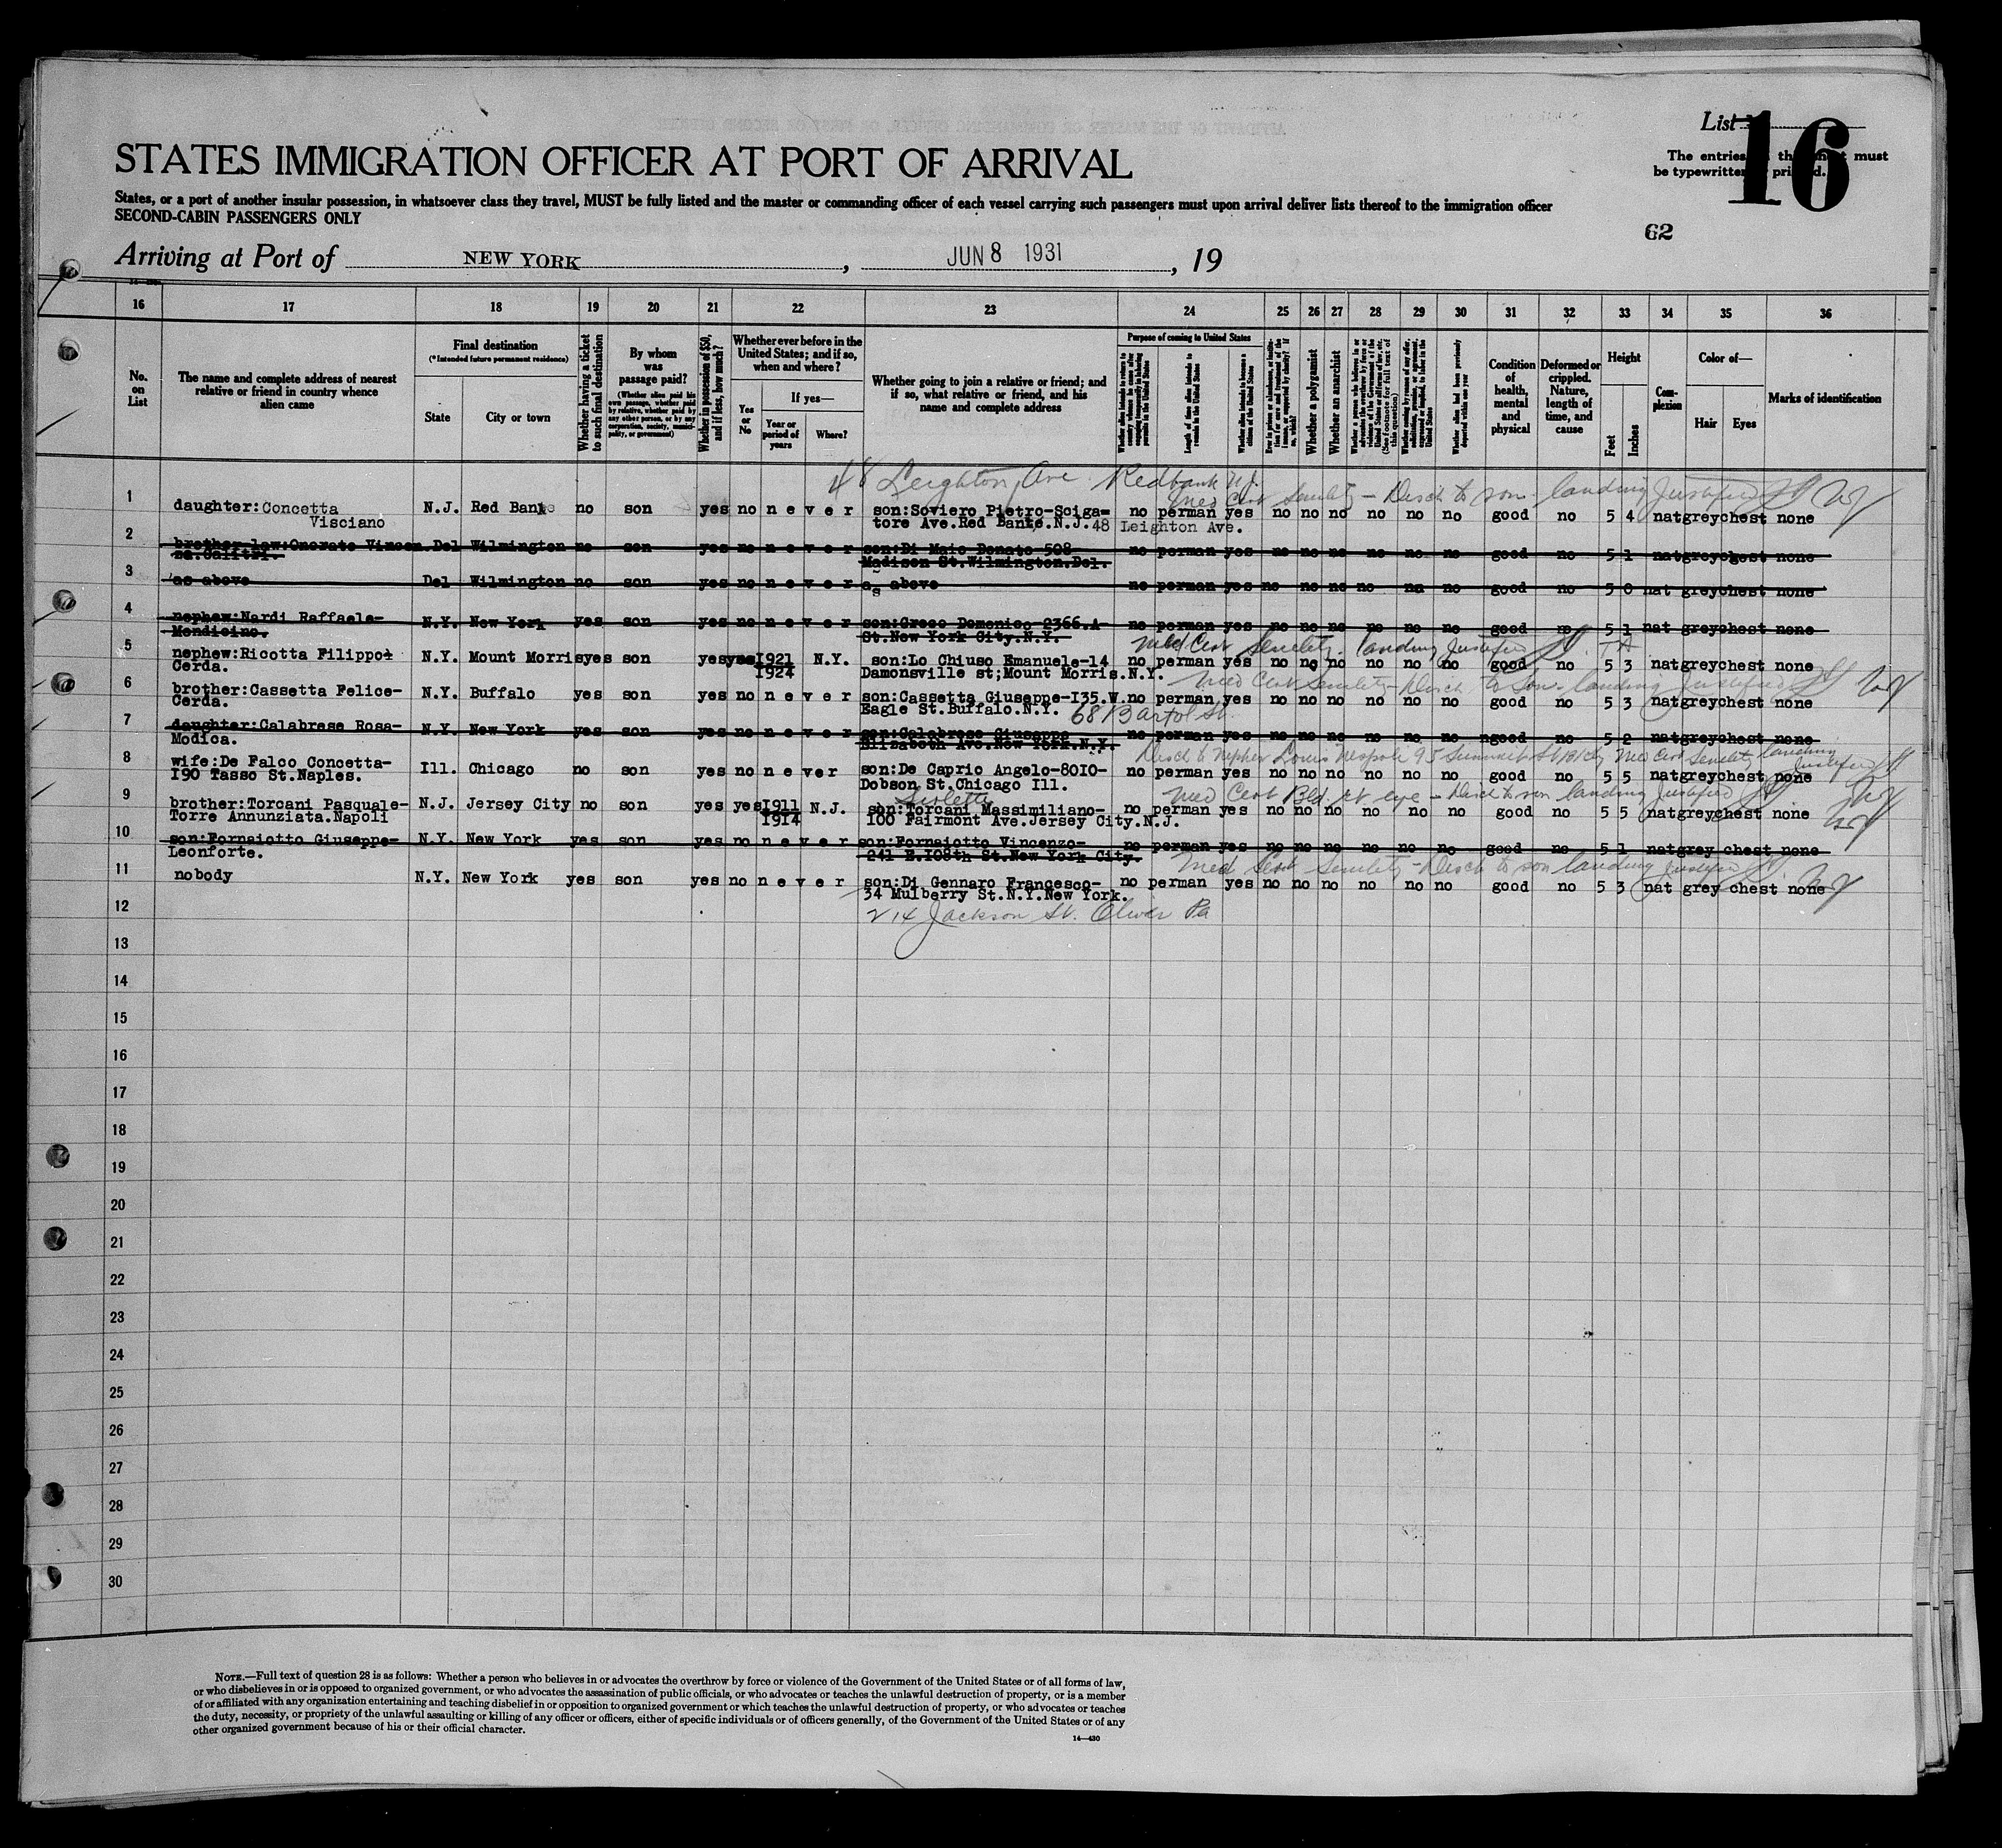 List
16
The entries must
be typewritten
STATES IMMIGRATION OFFICER AT PORT OF ARRIVAL
States, or a port of another insular possession, in whatsoever class they travel, MUST be fully listed and the master or commanding officer of each vessel carrying such passengers must upon arrival deliver lists thereof to the immigration officer
SECOND-CABIN PASSENGERS ONLY
62
Arriving at Port of NEW YORK, JUN 8 1931, 19
16 17 18 19 20 21 22 23 24 25 26 27 28 29 30 31 32 33 34 35 36
No. on List
The name and complete address of nearest relative or friend in country whence alien came
Final destination
(*Intended future permanent residence)
State
City or town
Whether having a ticket to such final destination
By whom was passage paid?
(Whether alien paid his own passage, whether paid by relative, whether paid by any other person, or by any corporation, society, municipality, or government)
Whether in possession of $50, and if less, how much?
Whether ever before in the United States; and if so, when and where?
Yes or No
If yes—
Year or period of years
Where?
Whether going to join a relative or friend; and if so, what relative or friend, and his name and complete address
Purpose of coming to United States
Length of time alien intends to remain in the United States
Whether alien intends to become a citizen of the United States
Whether a polygamist
Whether an anarchist
Whether alien had been previously deported within one year
Condition of health, mental and physical
Deformed or crippled. Nature, length of time, and cause
Height
Feet
Inches
Complexion
Color of—
Hair
Eyes
Marks of identification
48 Leighton Ave Redbank N.J.
Med Cert Senility - Disch to son landing Justified
1 daughter:Concetta N.J. Red Bank no son yes no n e v e r son:Soviero Pietro-Sciga- no perman yes no no no no no no good no 5 4 nat grey chest none
Visciano tore Ave.Red Bank.N.J. 48 Leighton Ave.
2 brother law:Onorato Vincen Del Wilmington no son yes no n e v e r son:Di Maio Donato 508 no perman yes no no no no no no good no 5 1 nat grey chest none
za.Calitri. Madison St.Wilmington.Del.
3 as above Del Wilmington no son yes no n e v e r as above no perman yes no no no no no no good no 5 0 nat grey chest none
4 nephew:Nardi Raffaele- N.Y. New York yes son yes no n e v e r son:Greco Domenico 2366.A- no perman yes no no no no no no good no 5 1 nat grey chest none
Mendicino. St.New York City.N.Y.
Med Cert Senility. landing Justified
5 nephew:Ricotta Filippo N.Y. Mount Morris yes son yes yes 1921 N.Y. son:Lo Chiuso Emanuele-14 no perman yes no no no no no no good no 5 3 nat grey chest none
Cerda. 1924 Damonsville st;Mount Morris.N.Y.
Med Cert Senility - Disch to Son - landing Justified
6 brother:Cassetta Felice- N.Y. Buffalo yes son yes no n e v e r son:Cassetta Giuseppe-I35.W. no perman yes no no no no no no good no 5 3 nat grey chest none
Cerda. Eagle St.Buffalo.N.Y. 68 Bartol St.
7 daughter:Calabrese Rosa- N.Y. New York yes son yes no n e v e r son:Calabrese Giuseppe no perman yes no no no no no no good no 5 2 nat grey chest none
Modica. Elizabeth Ave.New York.N.Y.
Disch to Nephew Louis Nespole 95 Summit St Med Cert Senility landing Justified
8 wife:De Falco Concetta- Ill. Chicago no son yes no n e v e r son:De Caprio Angelo-80I0- no perman yes no no no no no no good no 5 5 nat grey chest none
I90 Tasso St.Naples. Dobson St.Chicago Ill.
Med Cert Bld rt eye - Disch to son landing Justified
9 brother:Torcani Pasquale- N.J. Jersey City no son yes yes 1911 N.J. son:Torcani Massimiliano- no perman yes no no no no no no good no 5 5 nat grey chest none
Torre Annunziata.Napoli 1914 I00 Fairmont Ave.Jersey City.N.J.
10 son:Fornaiotto Giuseppe- N.Y. New York yes son yes no n e v e r son:Fornaiotto Vincenzo- no perman yes no no no no no no good no 5 1 nat grey chest none
Leonforte. 241 E.108th St.New York City.
Med Cert Senility - Disch to son landing Justified
11 nobody N.Y. New York yes son yes no n e v e r son:Di Gennaro Francesco- no perman yes no no no no no no good no 5 3 nat grey chest none
34 Mulberry St.N.Y.New York.
12 214 Jackson St. Oliver Pa
13
14
15
16
17
18
19
20
21
22
23
24
25
26
27
28
29
30
NOTE.—Full text of question 28 is as follows: Whether a person who believes in or advocates the overthrow by force or violence of the Government of the United States or of all forms of law,
or who disbelieves in or is opposed to organized government, or who advocates the assassination of public officials, or who advocates or teaches the unlawful destruction of property, or is a member
of or affiliated with any organization entertaining and teaching disbelief in or opposition to organized government or which teaches the unlawful destruction of property, or who advocates or teaches
the duty, necessity, or propriety of the unlawful assaulting or killing of any officer or officers, either of specific individuals or of officers generally, of the Government of the United States or of any
other organized government because of his or their official character.
14—430